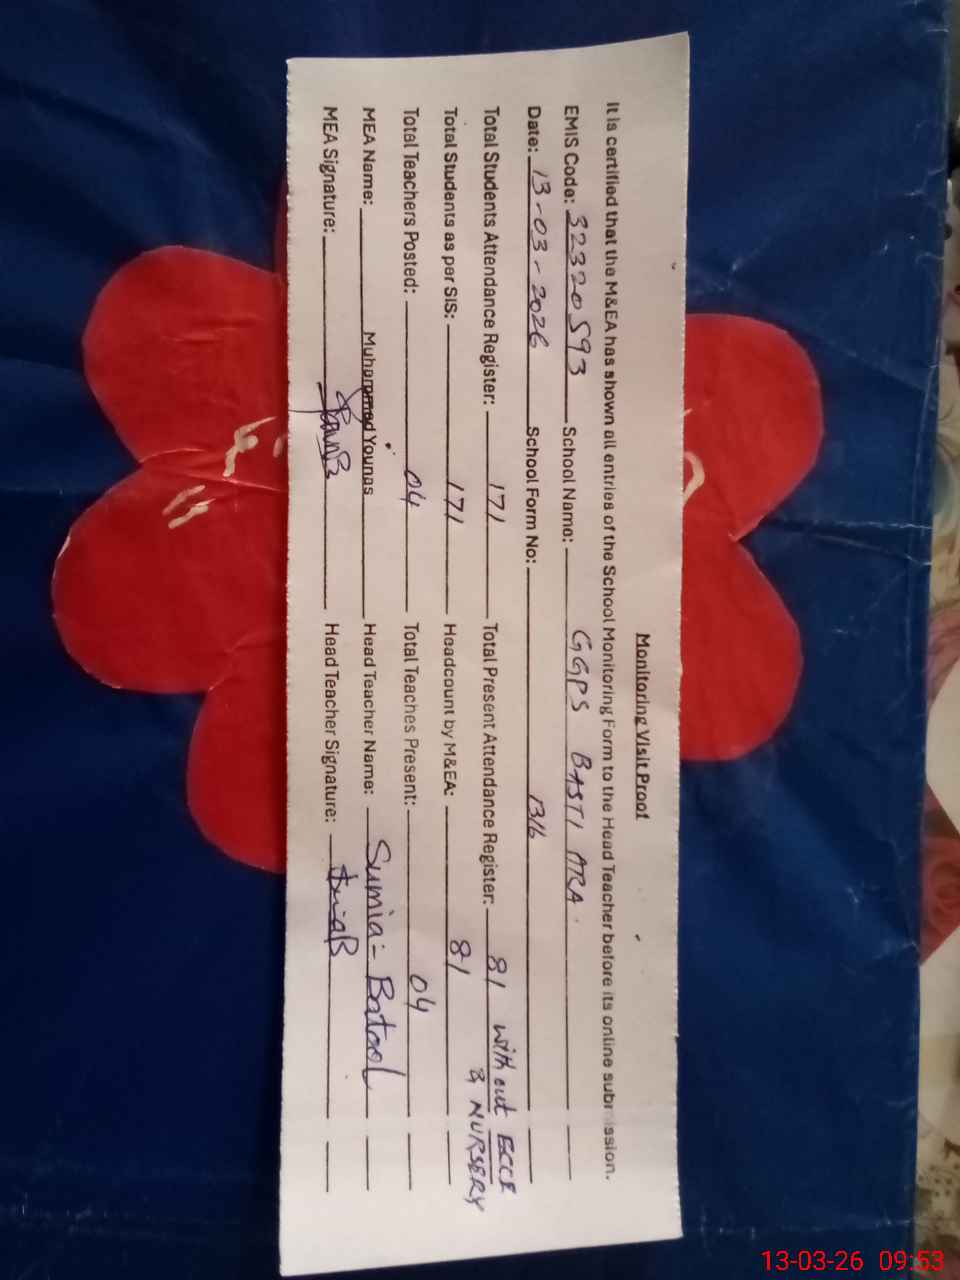 Monitoring Visit Proof
It is certified that the M&EA has shown all entries of the School Monitoring Form to the Head Teacher before its online submission.
EMIS Code: 32320593 School Name: GGPS BASTI ARA
Date: 13-03-2026 School Form No: 1316
Total Students Attendance Register: 171 Total Present Attendance Register: 81 without ECCE & NURSERY
Total Students as per SIS: 171 Headcount by M&EA: 81
Total Teachers Posted: 04 Total Teaches Present: 04
MEA Name: Muhammad Younas Head Teacher Name: Sumia Batool
MEA Signature: Head Teacher Signature:
13-03-26 09:53